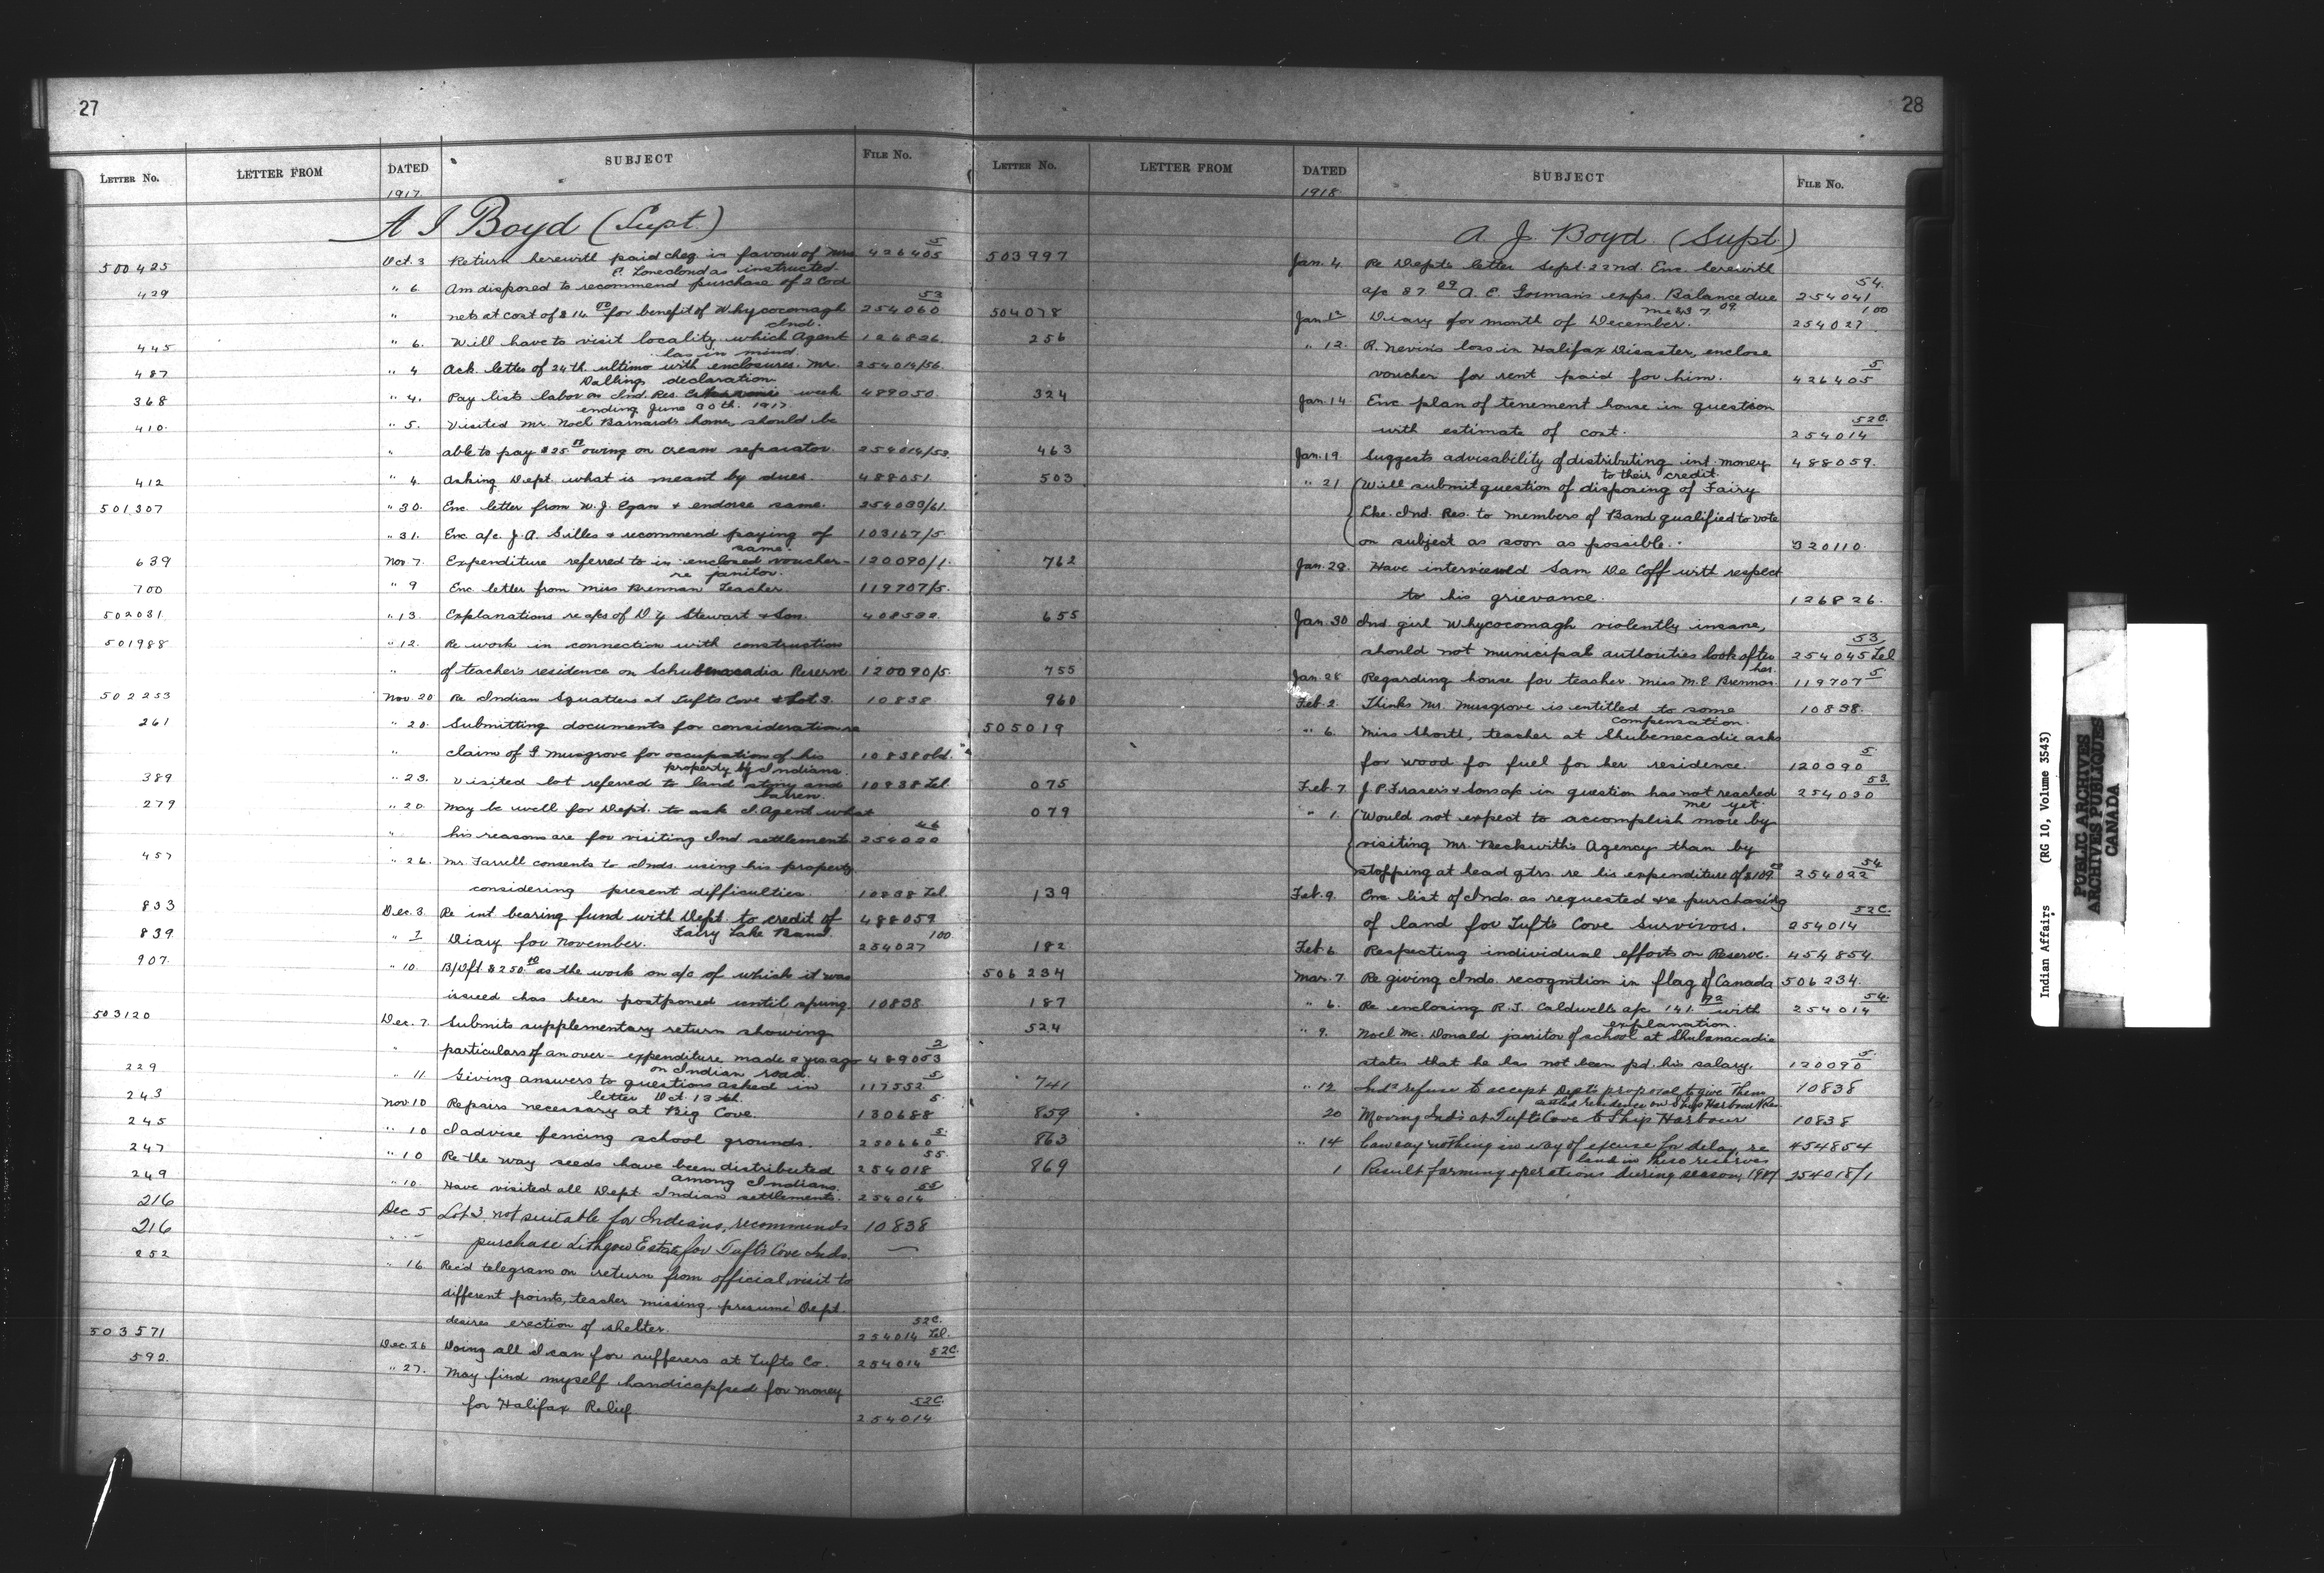 27
LETTER No. LETTER FROM DATED SUBJECT FILE No.
1917
A J Boyd (Supt.)
500425 Oct. 3 Return herewith paid cheq. in favour of Mrs 426405 5
P. Lonecloud as instructed.
429 " 6 Am disposed to recommend purchase of 2 Cod
" nets at cost of $14 00 for benefit of Whycocomagh 254060 53
Ind.
445 " 6. Will have to visit locality which Agent 126826.
has in mind.
487 " 4 Ack. letter of 24th ultimo with enclosures. Mr. 254014/56.
declaration.
368 " 4. Pay lists labor on Ind. Res. week 489050.
ending June 30th. 1917
410. " 5. Visited Mr. Noel Barnard's home, should be
" able to pay $25 owing on cream separator. 254014/53.
412 " 4. Asking Dept. what is meant by dues. 488051.
501307 " 30. Enc. letter from W. J. Egan & endorse same. 254033/61.
" 31. Enc a/c J. A. Gillis & recommend paying of 103167/5.
same.
639 Nov. 7. Expenditure referred to in enclosed voucher 120090/1.
re janitor.
700 " 9 Enc letter from Miss Brennan Teacher. 119707/5.
502031. " 13. Explanations re a/cs of D. Z. Stewart & Son.
501988 " 12. Re work in connection with construction
" of teacher's residence on Schubenacadia Reserve 120090/5.
502253 Nov. 20 Re Indian Squatters at Tufts Cove & Lot 3. 10838
261 " 20. Submitting documents for consideration re
" claim of F Musgrove for occupation of his 10838 old.
property by Indians.
389 " 23. Visited lot referred to land stony and 10838 Tel
barren.
279 " 20. May be well for Dept. to ask I. Agent what
" his reasons are for visiting Ind settlements 254020 46
457 " 26. Mr. Farrell consents to Inds. using his property
considering present difficulties. 10838 Tel.
833 Dec. 3. Re int bearing fund with Dept. to credit of 488059
Fairy Lake Band.
839 " 1 Diary for November. 254027 100.
907. " 10. B/Dft $250.00 as the work on a/c of which it was
issued has been postponed until spring 10838
503120 Dec. 7. Submits supplementary return showing
" particulars of an over-expenditure made 2 yrs ago 489053 2
on Indian road.
229 " 11 Giving answers to questions asked in 117552 5.
letter Oct. 13th.
243 Nov. 10 Repairs necessary at Big Cove. 130688 5.
245 " 10 I advise fencing school grounds. 250660 5.
247 " 10 Re the way seeds have been distributed 254018 55
among Indians.
249 " 10. Have visited all Dept Indian settlements. 254014 55
216 Dec 5 Lot 3 not suitable for Indians, recommends 10838
216 " - purchase Lithgow Estate for Tufts Cove Inds. —
252 " 16 Rec'd telegram on return from official visit to
different points, teacher missing, presume Dept.
desires erection of shelter. 254014 Tel. 52C.
503571 Dec. 26 Doing all I can for sufferers at Tufts Co. 254014 52C.
592. " 27. May find myself handicapped for money
for Halifax Relief. 254014 52C.
28
LETTER No. LETTER FROM DATED SUBJECT FILE No.
1918
A. J. Boyd (Supt)
503997 Jan. 4. Re Dept's letter Sept. 22nd. Enc. herewith
a/c 87.09 A. E. Gorman's exps. Balance due 254041 54.
504078 Diary for month of December. 254027. 100
256 " 12. R. Nevin's loss in Halifax Disaster, enclose
voucher for rent paid for him. 426405 5
324 Jan. 14 Enc. plan of tenement house in question
with estimate of cost. 254014 52C.
463 Jan. 19 Suggests advisability of distributing int. money 488059.
to their credit.
503 " 21 Will submit question of disposing of Fairy
Lke. Ind. Res. to members of Band qualified to vote
on subject as soon as possible. 320110.
762 Jan. 28. Have interviewed Sam De Coff with respect
to his grievance. 126826.
655 Jan. 30 Ind. girl Whycocomagh violently insane,
should not municipal authorities look after 254045 Tel 53
her.
755 Jan. 28 Regarding house for teacher. Miss M. E. Brennan. 119707 5
960 Feb. 2. Thinks Mr. Musgrove is entitled to some 10838.
compensation.
505019 " 6. Miss Shortt, teacher at Shubenacadie asks
for wood for fuel for her residence. 120090 5.
075 Feb. 7. J. P. Fraser's & Sons a/c in question has not reached 254030 53.
me yet.
079 " 1. Would not expect to accomplish more by
visiting Mr. Beckwith's Agency than by
stopping at head qtrs. re his expenditure of $109. 254022 54
139 Feb. 9. Enc list of Inds. as requested & re purchasing
of land for Tuft's Cove Survivors. 254014 52C.
182 Feb. 6 Respecting individual efforts on Reserve. 454854.
506234 Mar. 7 Re giving Inds. recognition in flag of Canada 506234.
187 " 6. Re enclosing R. J. Caldwell's a/c 141.72 with 254014 54.
explanation.
524 " 9. Noel Mc. Donald janitor of school at Shubenacadie
states that he has not been pd. his salary. 120090 5.
741 " 12 Inds refuse to accept Dept's proposal to give them 10838
settled residence on Ship Harbour Res.
859 20 Moving Inds at Tufts Cove to Ship Harbour 10838
863 " 14 Can say nothing in way of excuse for delay re 454854
land in these reserves
869 1 Result farming operations during season, 1917 254018/1
Indian Affairs (RG 10, Volume 3543)
PUBLIC ARCHIVES
ARCHIVES PUBLIQUES
CANADA